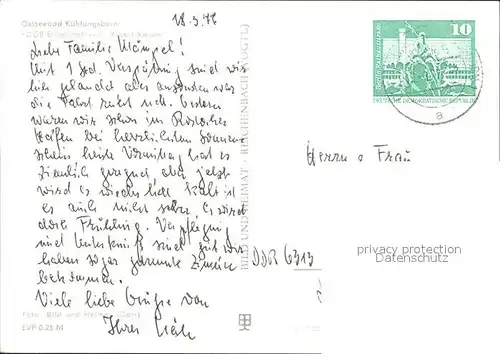 18.3.76
Ostseebad Kühlungsborn
FDGB-Erholungsheim
Liebe Familie
Mit 1 Std. Verspätung sind wir
hier gelandet aber ansonsten war
die Fahrt sich. Gestern
waren wir schon im Rostocker
Hafen bei herrlichem Sonnen-
schein heute Vormittag hat es
ziemlich geregnet aber jetzt
wird es wieder Kalt ist
es auch nicht mehr. Es wird
doch Frühling. Verpflegung
und Unterkunft sind gut wir
haben sogar Zimmer
bekommen.
Viele liebe Grüße von
Ihrer
Foto: Bild und Heimat
EVP 0,25 M
BILD UND HEIMAT · REICHENBACH (VOGTL)
10
DEUTSCHE DEMOKRATISCHE REPUBLIK
a
Herrn u Frau
DDR 6313
privacy protection
Watermark